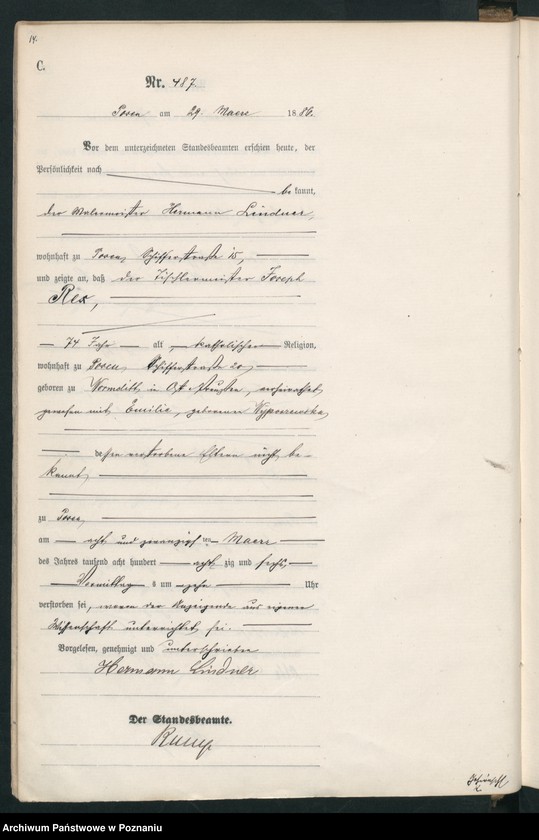 14.
C.
Nr. 487.
Posen am 29. Maerz 1886.
Vor dem unterzeichneten Standesbeamten erschien heute, der
Persönlichkeit nach
be kannt,
der Malermeister Hermann Lindner,
wohnhaft zu Posen, Schifferstraße 15,
und zeigte an, daß der Tischlermeister Joseph
Rex,
74 Jahr alt, katholischer Religion,
wohnhaft zu Posen, Schifferstraße 20,
geboren zu Wormditt in Ost-Preußen, verheirathet
gewesen mit Emilie, geborenen
dessen verstorbene Eltern nicht be-
kannt,
zu Posen,
am acht und zwanzigsten Maerz
des Jahres tausend acht hundert acht zig und sechs,
Vormittag s um zehn Uhr
verstorben sei, wovon der Anzeigende aus eigener
Wissenschaft unterrichtet sei.
Vorgelesen, genehmigt und unterschrieben
Hermann Lindner
Der Standesbeamte.
Archiwum Państwowe w Poznaniu